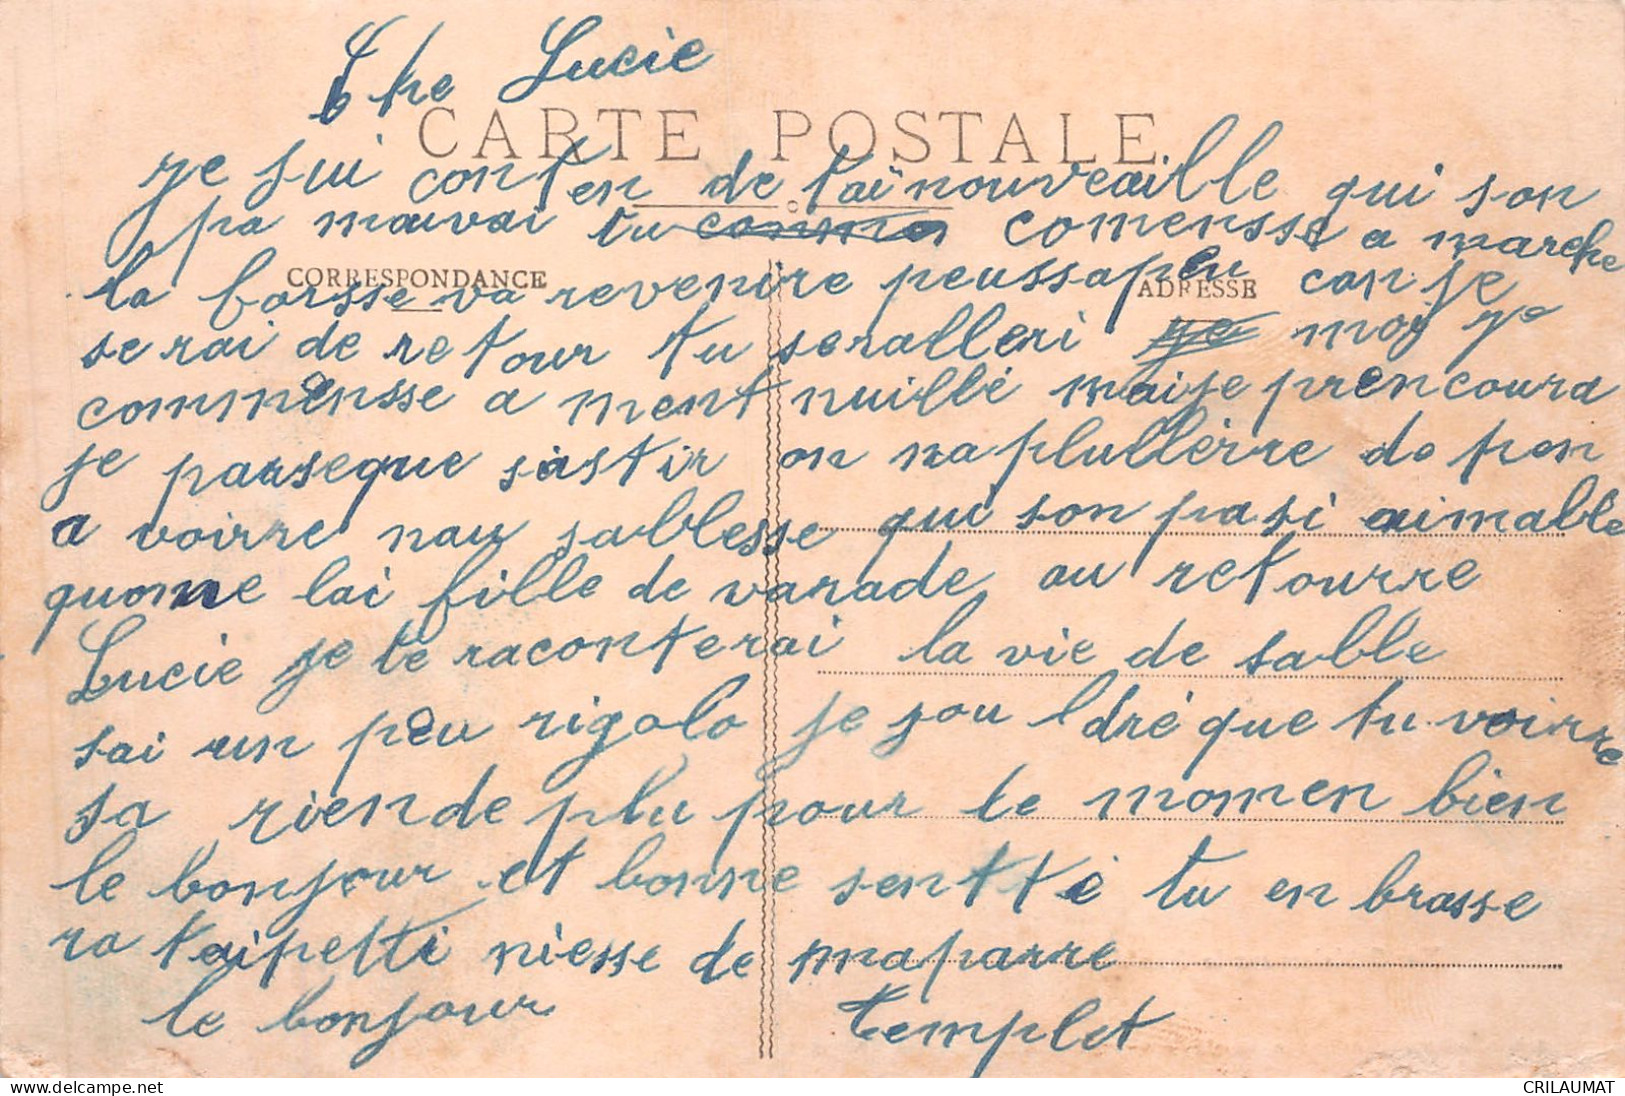 Che Lucie
CARTE POSTALE
je sui conten de taï nouveaille qui son
pa mauvai tu comma comensse a marche
CORRESPONDANCE
ADRESSE
la forsse va revenire peussapeu can je
serai de retour tu seralleri je moy je
commensse a ment nuillé mai je prencoura
je parseque sistir on na plullèrre de pen
a voirre nau sablesse qui son pasi aimable
quome lai fille de varade au retourre
Lucie je te raconterai la vie de sable
sai un peu rigolo je vou ldré que tu voirre
sa riende plu pour le momen bien
le bonjour et bonne senttè tu en brasse
ra taipetti niesse de maparre
le bonjour templet
CRILAUMAT
delcampe.net